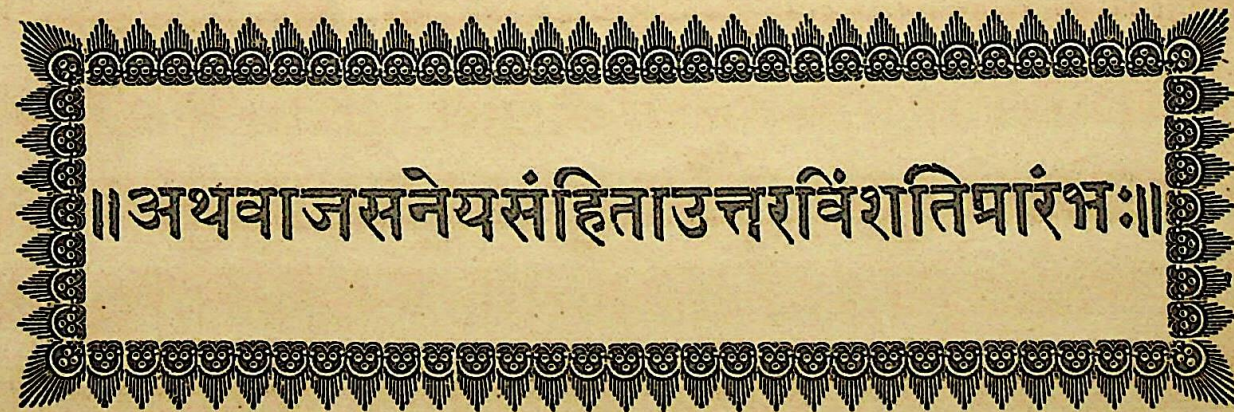 ॥अथवाजसनेयसंहिताउत्तरविंशतिप्रारंभः॥